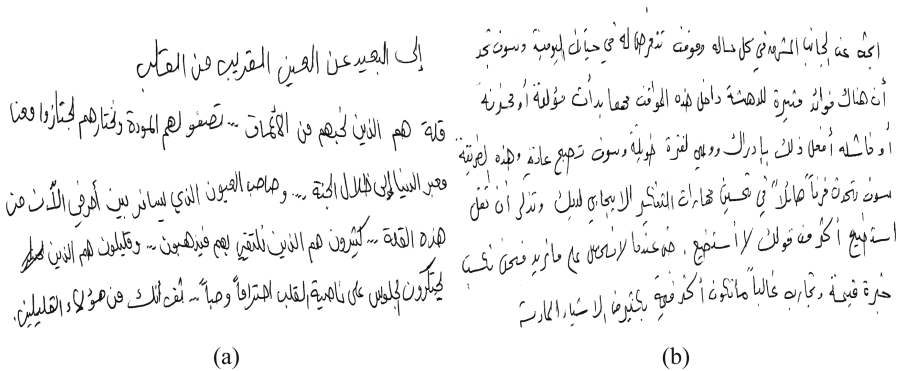 إلى البعيد عن العين القريب من القلب
قلة هم الذين نحبهم من الأعماق ... تصفو لهم المودة ونختارهم ليجتازوا معنا
معبر الدنيا إلى ظلال الجنة .... وصاحب العيون الذي يسافر بين أحرفي الآن من
هذه القلة ... كثيرون هم الذين نلتقي بهم فيذهبون ... وقليلون هم الذين
يحتكرون الجلوس على ناصية القلب احتراماً وحباً ... ثق أنك من هؤلاء القليلين.
(a)
ابحث عن الجانب المشرق في كل حالة وموقف تتعرض له في حياتك اليومية وسوف تجد
أن هناك فوائد مثيرة للدهشة داخل هذه المواقف مهما بدأت مؤلمة أو محزنة
أو فاشله أفعل ذلك بإدراك ووعي لفترة طويلة وسوف تصبح عادة وهذه الطريقة
سوف تحدث فرقاً هائلاً في تحسين مهارات التفكير الإيجابي لديك وتذكر أن تقل
استطيع أكثر من قولك لا أستطيع ، حتى عندما لا نتحصل على ما نريد فنحن نكسب
خبرة قيمة وتجارب غالباً ما تكون أكثر قيمة بكثير من الاشياء
(b)